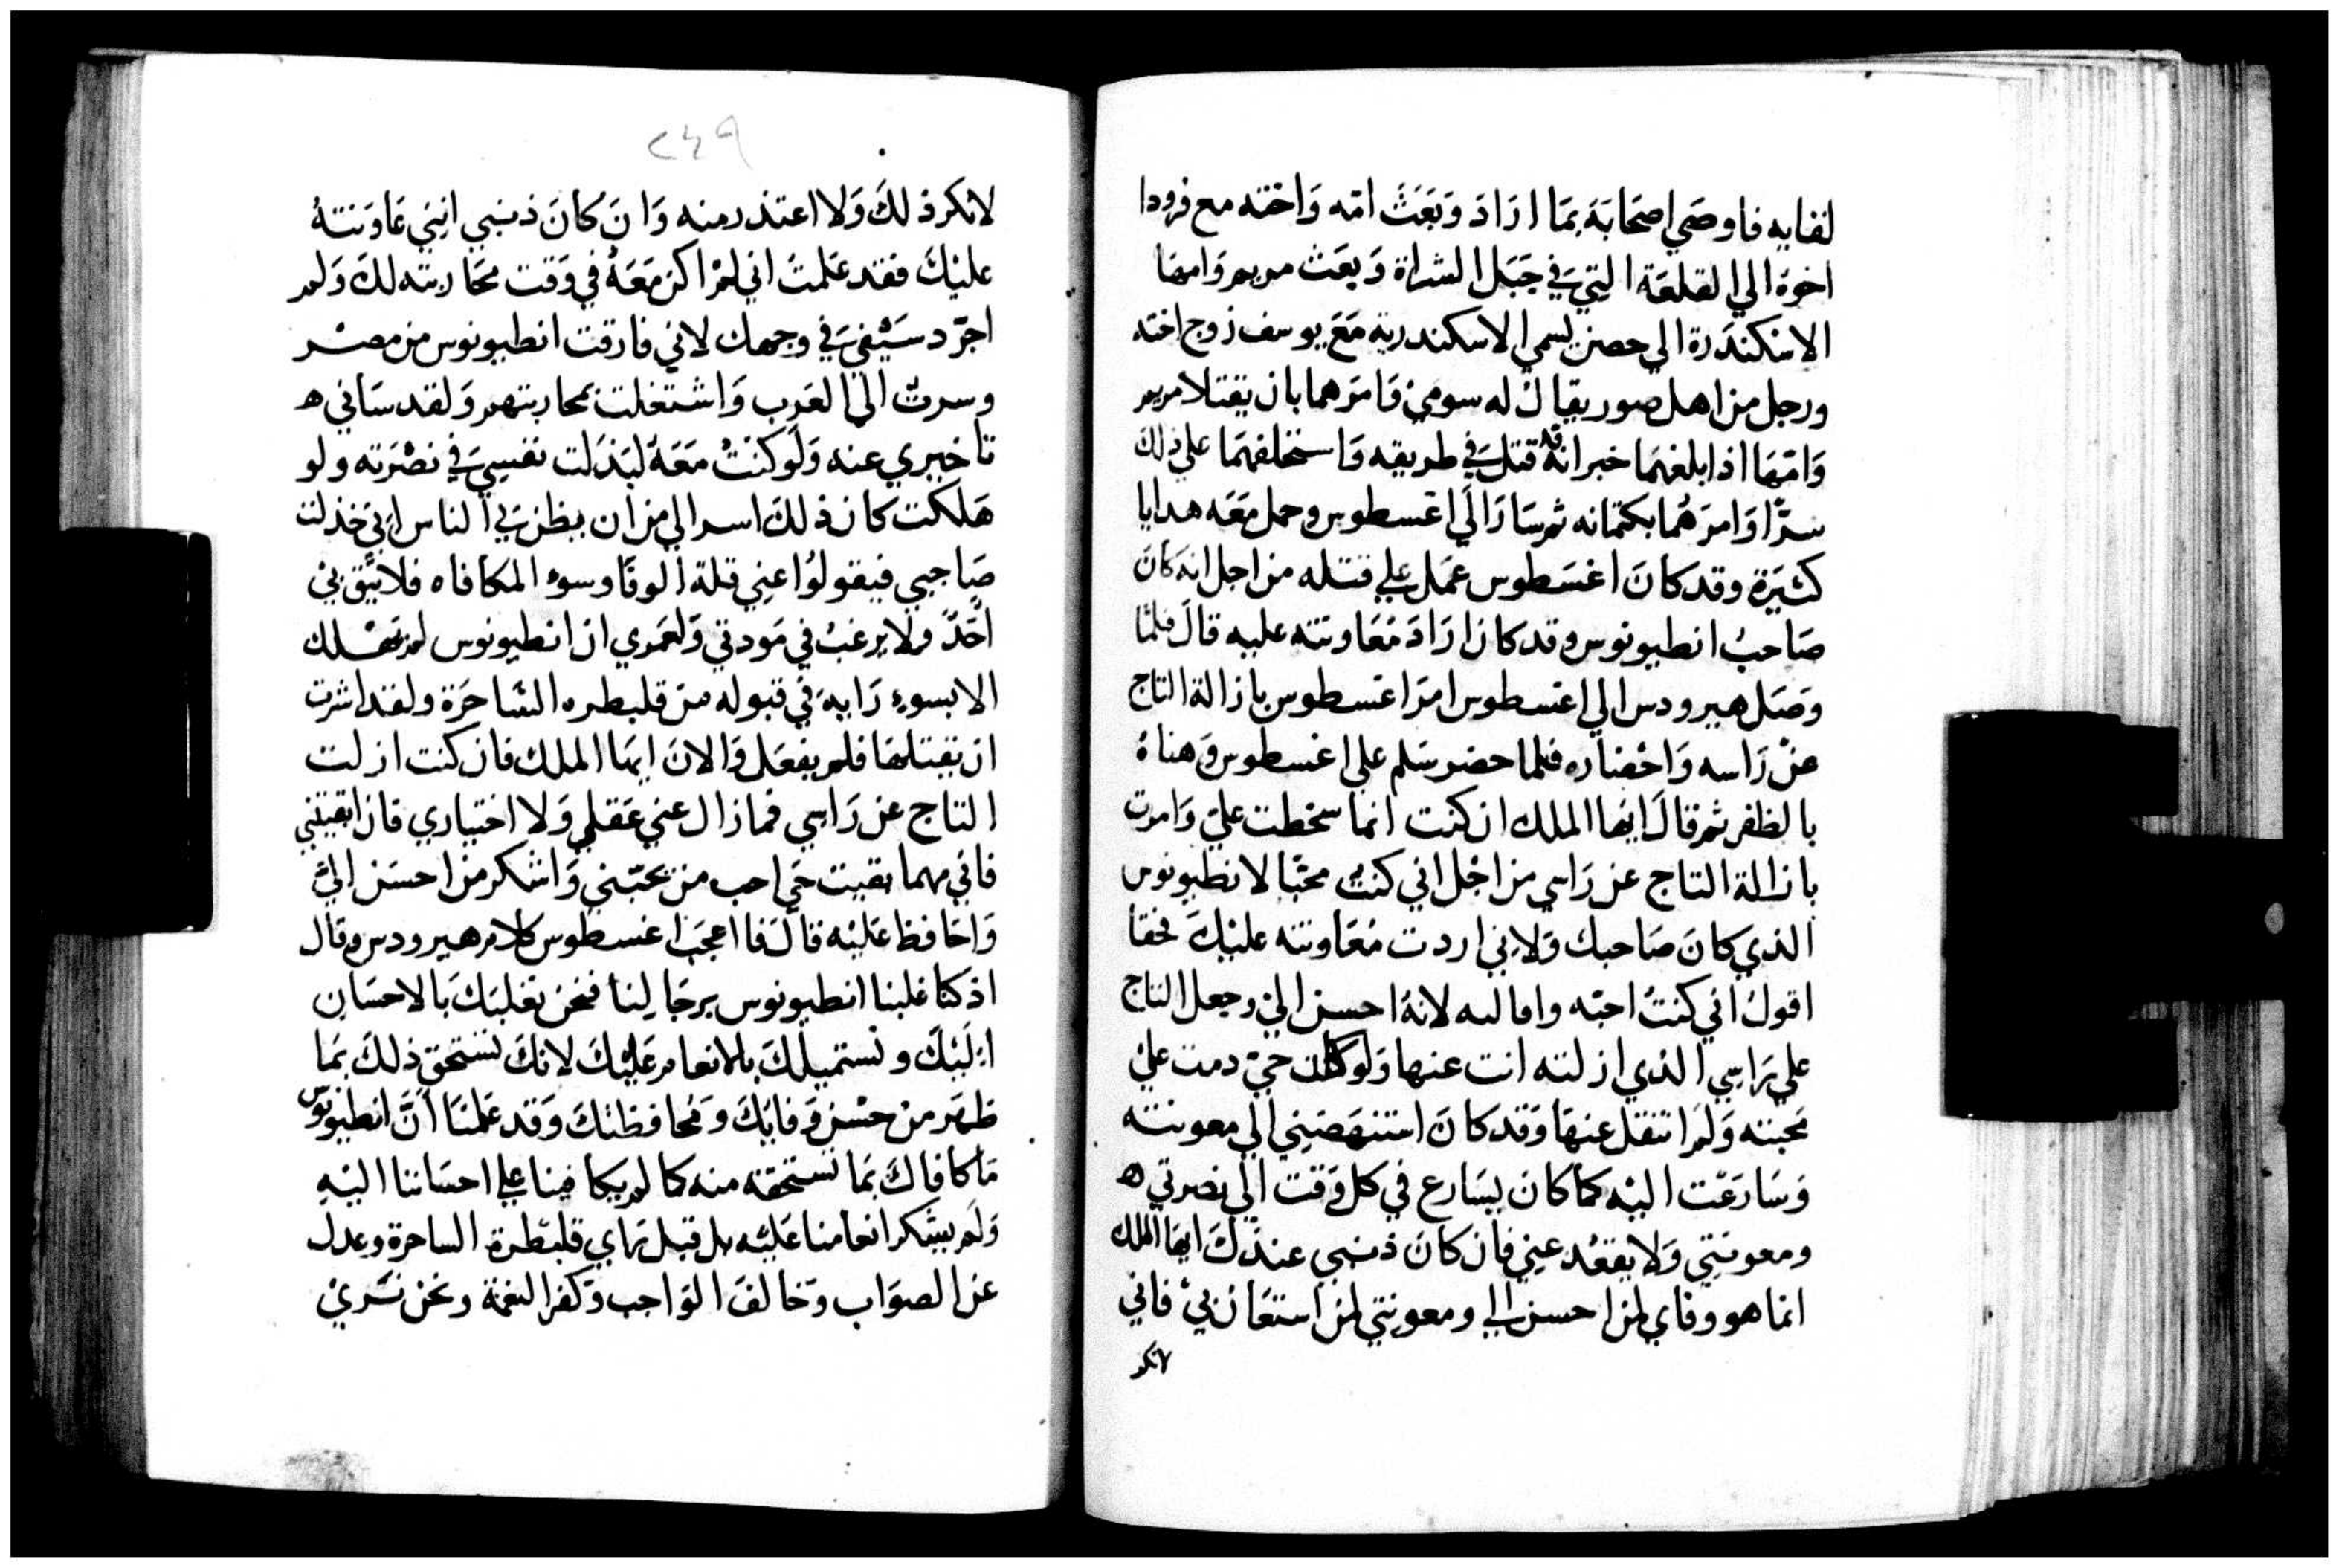 لقايه فاوصَي اصحَابَه بمَا ارَادَ وَبَعَثَ امّه وَاخته مع فرودا
اخوهَ الي القلعَة التي في جَبَل الشراة وَبعَث مريم وَامهَا
الاسْكندَرة الي حصن يسمي الاسكندرية مَعَ يوسف زوج اخته
ورجل من اهل صور يقال له سومي وَامَرهما بان يقتلا مريم
وَامّهَا اذا بلغهمَا خبر انه قد قتل في طريقه وَاستحلفهمَا علي ذلك
سرًّا وَامرَهُما بكتمانه ثم سَارَ الَي اغسطوس وحمل مَعَه هدايا
كثيرَة وقد كانَ اغسَطوس عمَل علي قتله من اجل انه كانَ
صَاحبُ انطيونوس وقد كان ارَادَ مُعَاونته عليه قالَ فلمَّا
وصَل هيرودس الي اغسطوس امرَ اغسطوس بازالة التاج
عنْ رَاسه وَاحْضاره فلما حضر سَلم علي اغسطوس وَهناهُ
بالظفر ثم قالَ ايهَا الملك ان كنت انما سخطت عليّ وَامرت
بازالة التاج عن رَاسي من اجْل اني كنتُ محبًّا لانطيونوس
الذي كانَ صَاحبك وَلاِني اردت مُعَاونته عليْكَ فحقا
اقولُ اني كنتُ احبّه وامَا لله لانهُ احسن اليَّ وجعل التاج
علي رَاسِي الذي ازلته انت عنها وَلو كان حيّ دمت عليْ
مَحبته وَلمَ انتقل عنهَا وَقد كانَ استنهضَنِي الي معونته
وَسَارعْت اليْه كما كانَ يسَارع في كل وَقت الي نصرتي ه
ومعونتِي وَلا يقعُد عِني فان كانَ ذنبي عندَكَ ايهَا الملك
انما هو وفاي لمن احسن الي ومعونتي لمن استعَان بيْ فاني
لانكر
٢٤٩
لانكر ذلكَ وَلا اعتذر منه وَانَ كانَ ذنبي انِنِي عَاوَنتهُ
عليْكَ فقد عَلمتَ اني لمْ اكن مَعَهُ في وَقت محَاربته لكَ وَلم
اجرّد سَيْفي في وجهك لاني فارقت انطيونوس من مصْر
وسرتُ الَي العَرب وَاشتغلت بمحاربتهم وَلقد سَاني ه
تاخيري عنه وَلوَ كنتُ مَعَهُ لبَذلت نفسِي في نصْرَته ولو
هَلكت كان ذلكَ اسر الي من ان يظن بَي الناس اني خذلت
صَاحبي فيقولوُا عنِي قلة الوفَا وسوء المكافاه فلا يثق بيْ
احَدٌ ولا يرغبُ في مَودتي وَلعَمري ان انطيونوس لم يهْلك
الا بسوءِ رَايه في قبوله من قلبطره السَّاحرَة ولقد اشرت
ان يقتلهَا فلم يفعَل وَالانَ ايهَا الملك فان كنت ازلت
التاج عن رَاسِي فما زال عني عَقلي وَلا اختياري فان ابقيتني
فاني مهما بقيت حَي احب من يحبّني وَاشكر من احسَن اليَّ
وَاحَافظ عَليْه قالَ فا اعجَب اغسطوس كلام هيرودس وقال
اذ كنا غلبنا انطيونوس برجَالِنا فنحن نغلبَكَ بالاحسَانِ
اِليْكَ ونستميلكَ بالانعام عَليْكَ لانكَ تستحق ذلكَ بمَا
ظهَر منْ حسْن وَفايكَ وَمحافظتكَ وَقد عَلمْنَا انَّ انطيونوس
مَا كافاكَ بمَا تستحقه منه كما لم يكافينا علي احسَاننا اليْهِ
وَلم يشكر انعامنا عَليْه بل قبل رَاي قلبطرة الساحرة وعدلَ
عن الصوَاب وَخالفَ الوَاجب وَكفر النعمَة ونحن نَريْ